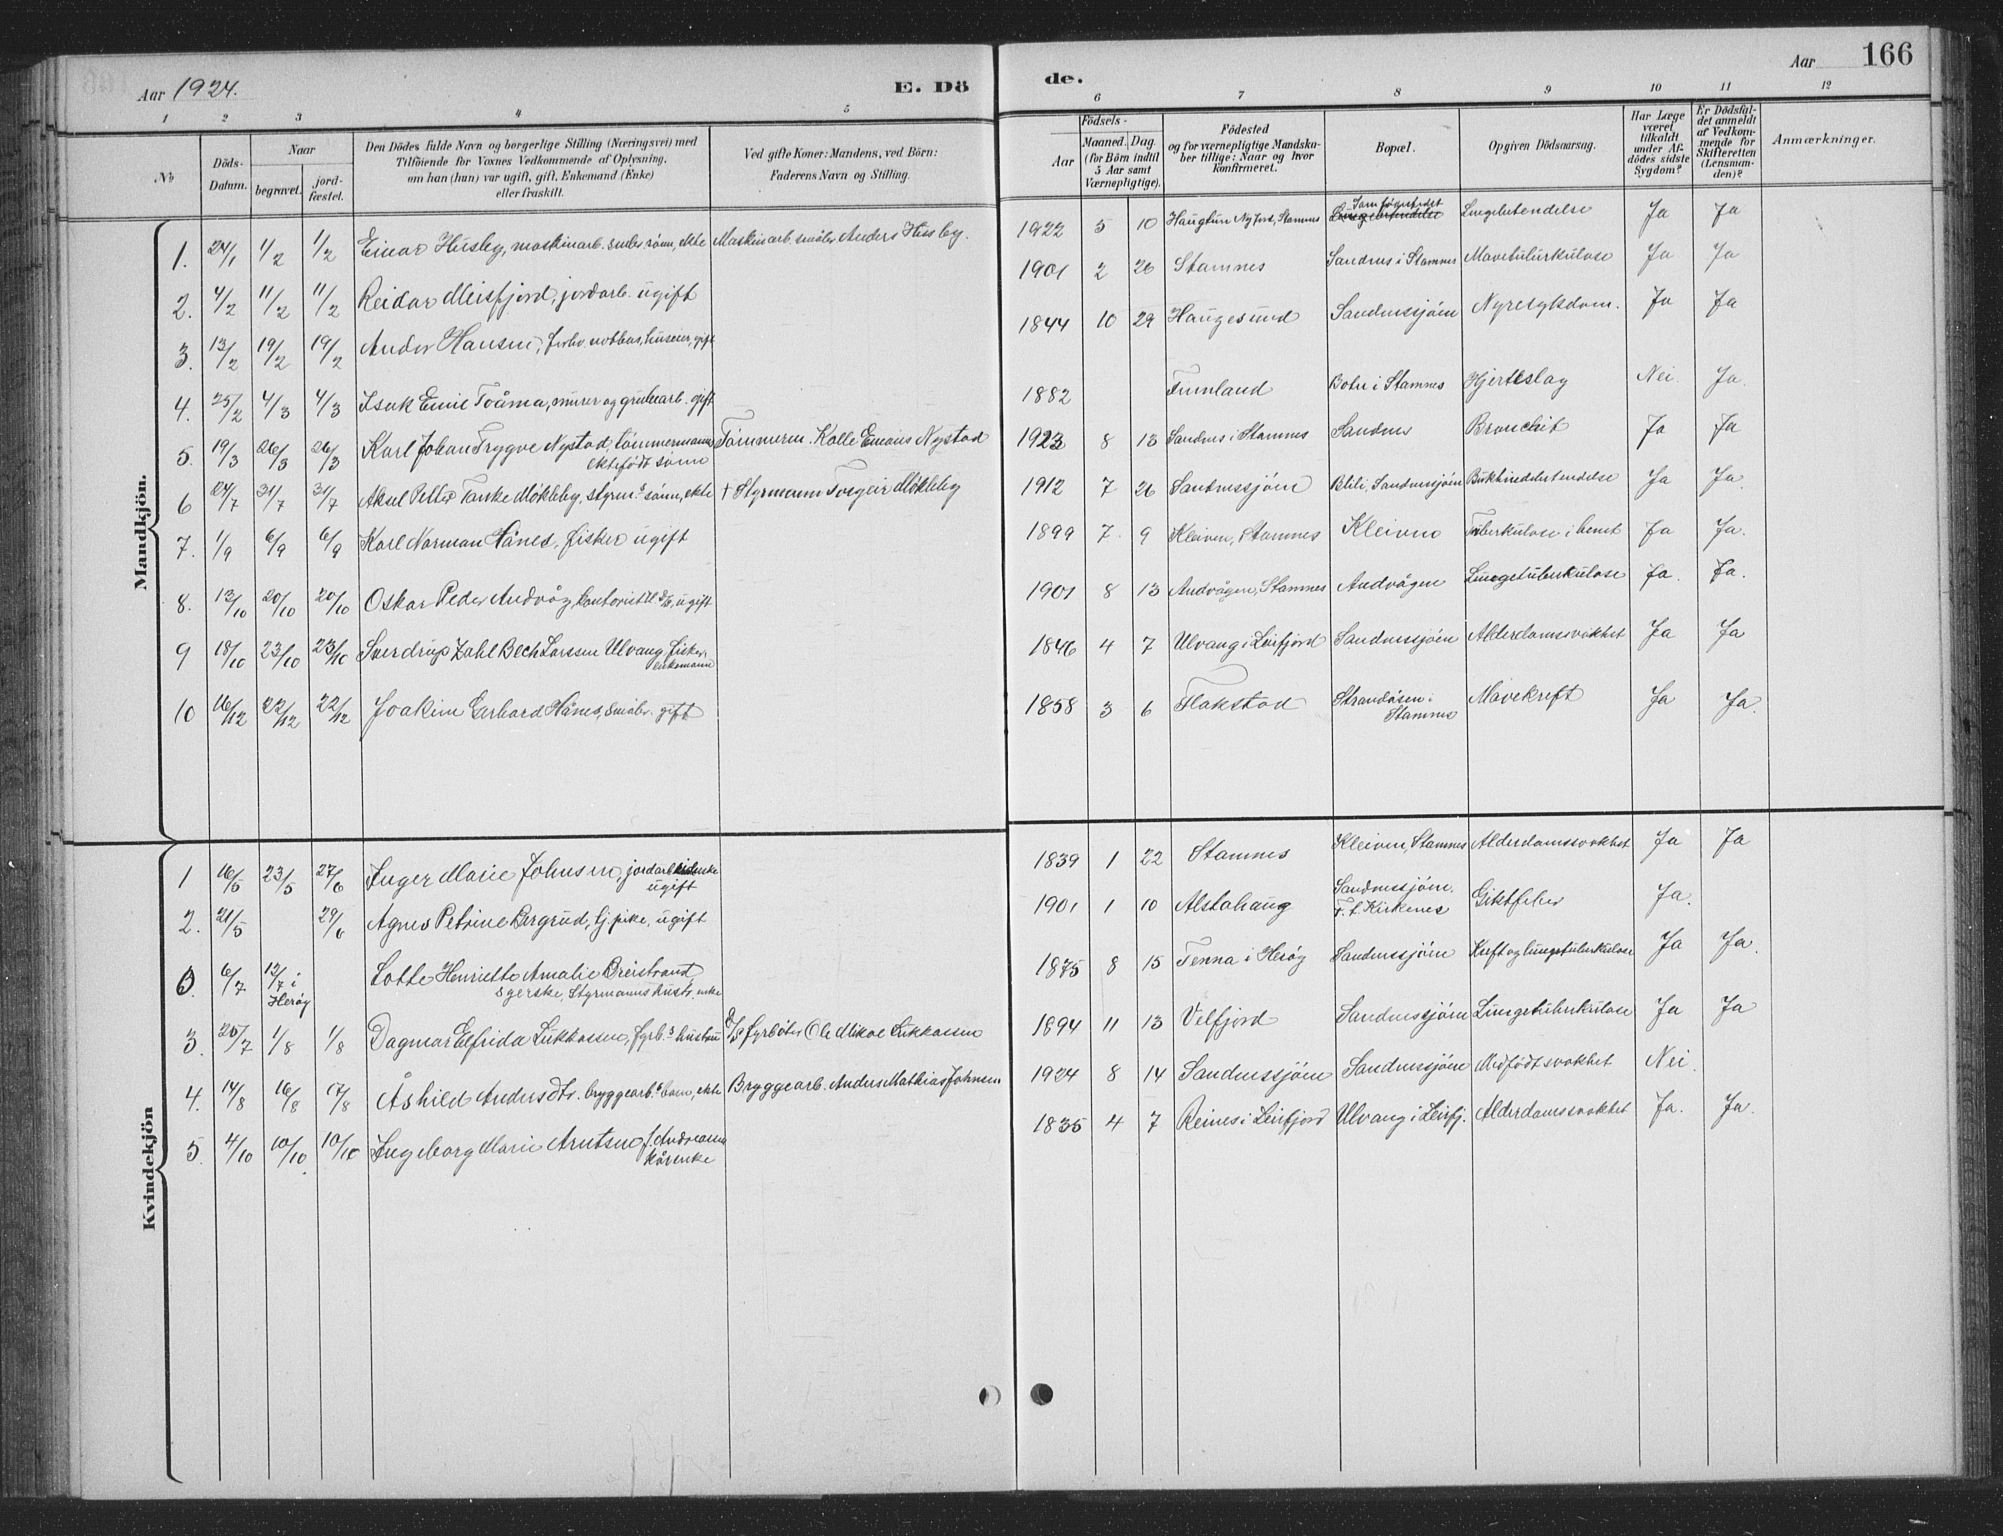 Aar 1924.
E. Dö
1 2 3 4 5
No
Döds-
Datum.
Naar
begravet.
jord-
fæstet.
Den Dödes fulde Navn og borgerlige Stilling (Næringsvei) med
Tilföiende for Voxnes Vedkommende af Oplysning,
om han (hun) var ugift, gift, Enkemand (Enke)
eller fraskilt.
Ved gifte Koner: Mandens, ved Börn:
Faderens Navn og Stilling.
Mandkjön.
1. 24/1 1/2 1/2 Einar Husby, maskinarb. småbr. sønn, ekte Maskinarb. småbr. Anders Husby.
2. 4/2 11/2 11/2 Reidar Meisfjord, jordarb. ugift
3. 13/2 19/2 19/2 Hansen, huseier, gift
4. 25/2 4/3 4/3 Isak Emil Toåma, murer og grubearb. gift
5. 19/3 26/3 26/3 Karl Johan Trygve Nystad, tømmermanns Tømmerm. Kalle Einais Nystad
ektefødt sønn
6 24/7 31/7 31/7 Aksel Petter Tanke Møkleby, styrm.s sønn, ekte + Styrmann Torgeir Møkleby
7. 1/9 6/9 6/9 Karl Norman Hånes, fisker ugift
8. 13/10 20/10 20/10 Oskar Peder Andvåg, kontorist ugift
9 18/10 23/10 23/10 Sverdrup Zahl Bech Larssen Ulvang, Fisker,
enkemann
10 16/12 22/12 22/12 Joakim Gerhard Hånes, småbr. gift
Kvindekjön
1 16/5 23/5 27/6 Inger Marie Johnsen, jordarbeiderske
ugift
2. 21/5 29/6 Agnes Petrine Bergrud, tj. pike, ugift
0. 6/7 12/7 i
Herøy
Lotte Henriette Amalie Breistrand,
syerske, Styrmanns hustr. enke
3. 25/7 1/8 1/8 Dagmar Elfrida Lukkassen, fyrb.s hustru D/S fyrbøter Ole Mikal Lukkassen
4. 14/8 16/8 17/8 Åshild Andersdtr. bryggearb.s barn, ekte Bryggearb. Anders Mathias Johnsen
5. 4/10 10/10 10/10 Ingeborg Marie Arntsen f. Andreassen
kårenke
de.
Aar 166
6 7 8 9 10 11 12
Födsels-
Aar
Maaned. Dag.
(for Börn indtil
5 Aar samt
Værnepligtige).
Födested
og for værnepligtige Mandska-
ber tillige: Naar og hvor
konfirmeret.
Bopæl.
Opgiven Dödsaarsag.
Har Læge
været
tilkaldt
under Af-
dödes sidste
Sygdom?
Er Dödsfal-
det anmeldt
af Vedkom-
mende for
Skifteretten
(Lensman-
den)?
Anmærkninger.
Som fødestedet
1922 5 10 Haugtun Nyjord, Stamnes Lungebetendelse Lungebetendelse Ja Ja
1901 2 26 Stamnes Sandnes i Stamnes Mavetuberkulose Ja Ja
1844 10 29 Haugesund Sandnessjøen Nyresykdom. Ja Ja
1882 Finnland Botn i Stamnes Hjerteslag Nei. Ja.
1923 8 13 Sandnes i Stamnes Sandnes Bronchit Ja Ja
1912 7 26 Sandnessjøen Bleli, Sandnessjøen Bukhindebetendelse Ja Ja.
1899 7. 9 Kleiven, Stamnes Kleiven Tuberkulose i benet Ja Ja.
1901 8 13 Andvågen, Stamnes Andvågen Lungetuberkulose Ja. Ja.
1846 4 7 Ulvang i Leirfjord Sandnessjøen Alderdomssvakhet Ja Ja
1858 3 6 Flakstad Strandåsen i
Stamnes
Mavekreft Ja Ja.
1839 1 22 Stamnes Kleiven, Stamnes Alderdomssvakhet Ja Ja
1901 1 10 Alstahaug Sandnessjøen.
F. t. Kirkenes
Giktfeber Ja.
1875 8 15 Tenna i Herøy Sandnessjøen Kreft og lungetuberkulose Ja Ja.
1894 11 13 Velfjord Sandnessjøen Lungetuberkulose Ja Ja
1924 8 14 Sandnessjøen Sandnessjøen Medfødt svakhet Nei.
1835 4 7 Reines i Leirfjord Ulvang i Leirfj. Alderdomssvakhet Ja. Ja.